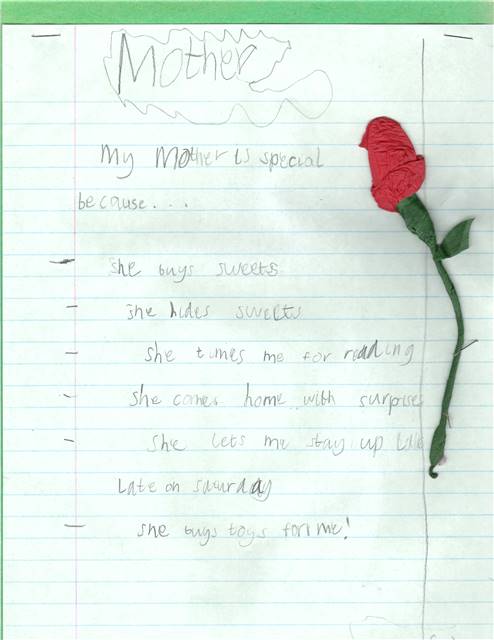 Mother
My Mother is special
because...
- she buys sweets
- she hides sweets
- she times me for reading
- she comes home with surprises
- she lets me stay up
Late on saturday
- she buys toys for me!